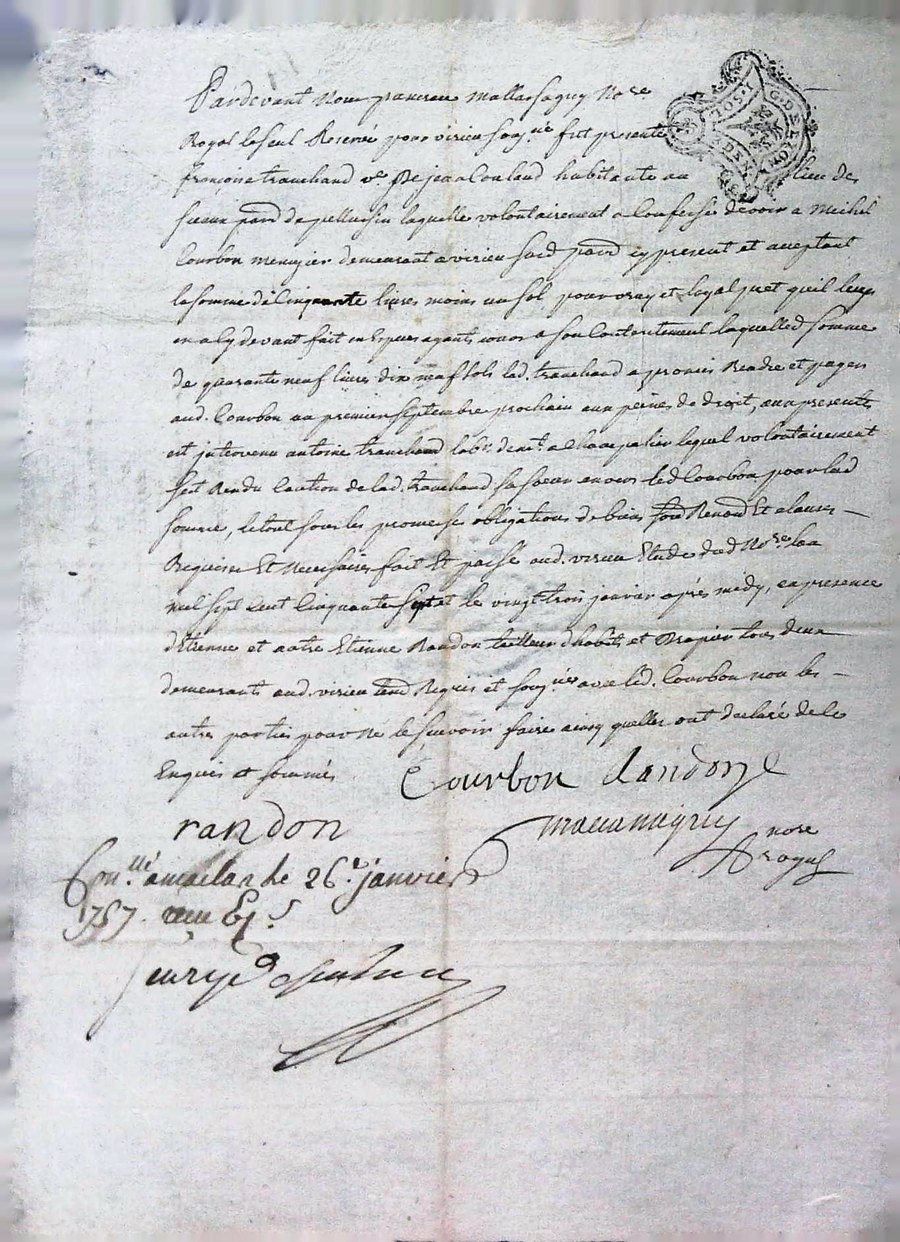 Pardevant Nous
Royal le seul Reservé pour virieu souss.né fut presente
françoise tranchand v.e De jean Couland habitante au lieu de
sceaux par.d de pellussin laquelle volontairement a Confessé devoir a Michel
Courbon meunyier demeurant a virieu sud. par.d cy present et acceptant
la somme de Cinquante livres moins un sol pour vray et loyal pret quil luy
en a cy devant fait en Especes a son Contentement laquelled. somme
de quarante neuf livres dix neuf sols lad. tranchand a promis Rendre et payer
aud. Courbon au premier septembre prochain aux peines de droit, aux presentes
est jntervenu antoine tranchand lab.r demt. a lequel volontairement
sest Rendu Caution de lad. tranchand sa soeur envers led Courbon pour lad
somme, le tout sous les promesses obligations de biens Renond Et clauses
Requises Et Necessaires fait Et passé aud. virieu Etude dud Nore. lan
mil sept cent Cinquante sept et le vingt trois janvier après midy, en presence
d'Etienne et autre Etienne Randon tailleur d'habits et Drapier tous deux
demeurants aud. virieu Requis et sousnés avec led. Courbon non les
autres parties pour ne le sçavoir faire ainsy quelles ont declaré de ce
Enquis et sommés
Courbon
randon
nore
royal
Con.llé le 26.e janvier
1757.